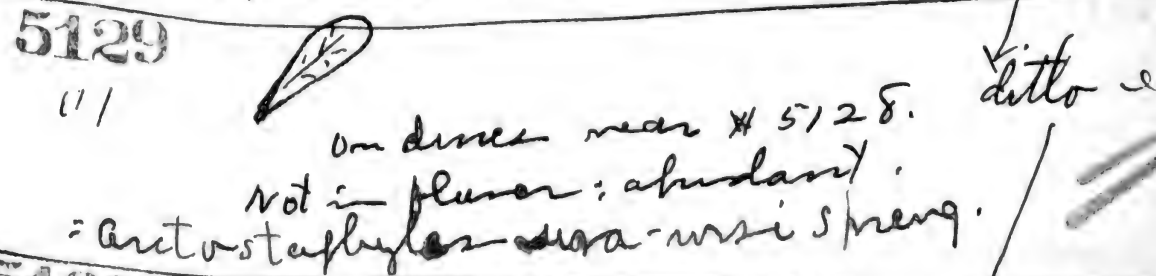 5129
ditto
on dunes near # 5128.
Not in flower; abundant.
= Arctostaphylos uva-ursi Spreng.